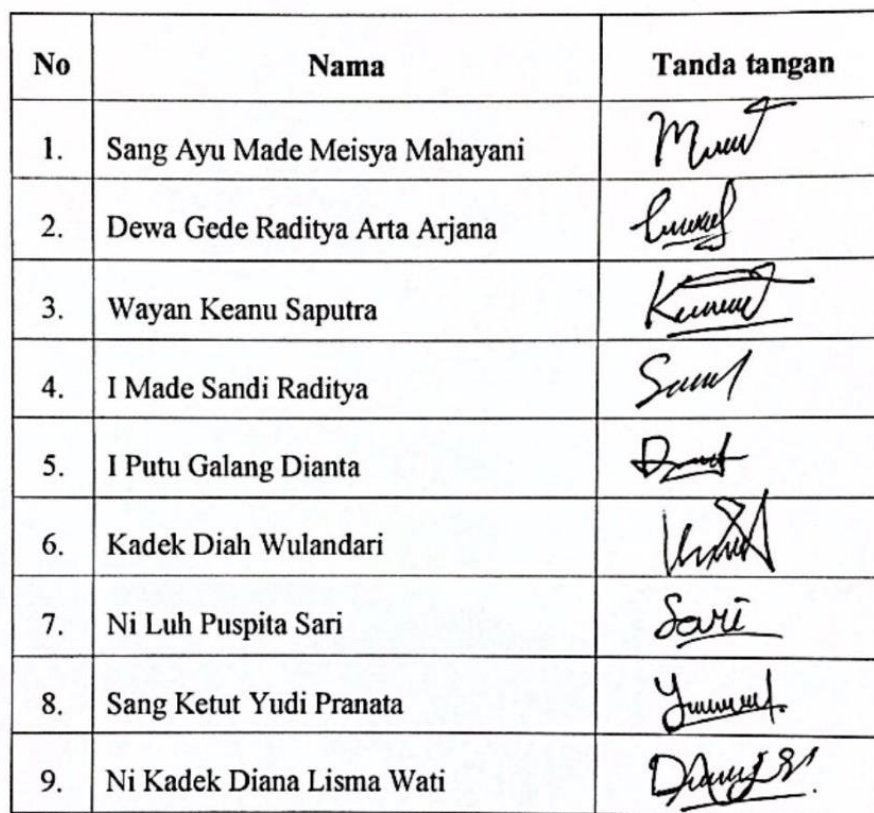 No Nama Tanda tangan
1. Sang Ayu Made Meisya Mahayani
2. Dewa Gede Raditya Arta Arjana
3. Wayan Keanu Saputra
4. I Made Sandi Raditya
5. I Putu Galang Dianta
6. Kadek Diah Wulandari
7. Ni Luh Puspita Sari Sari
8. Sang Ketut Yudi Pranata
9. Ni Kadek Diana Lisma Wati